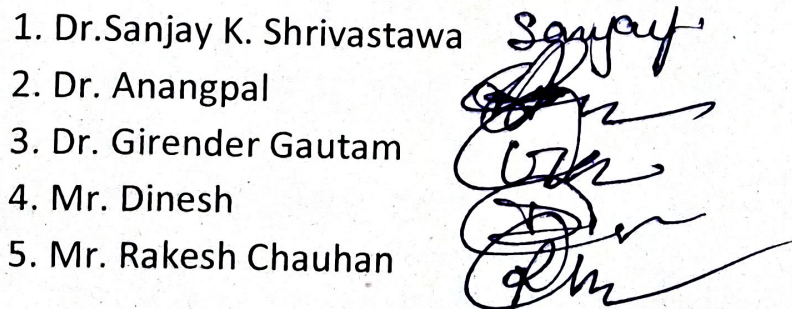 1. Dr.Sanjay K. Shrivastawa Sanjay
2. Dr. Anangpal
3. Dr. Girender Gautam
4. Mr. Dinesh
5. Mr. Rakesh Chauhan